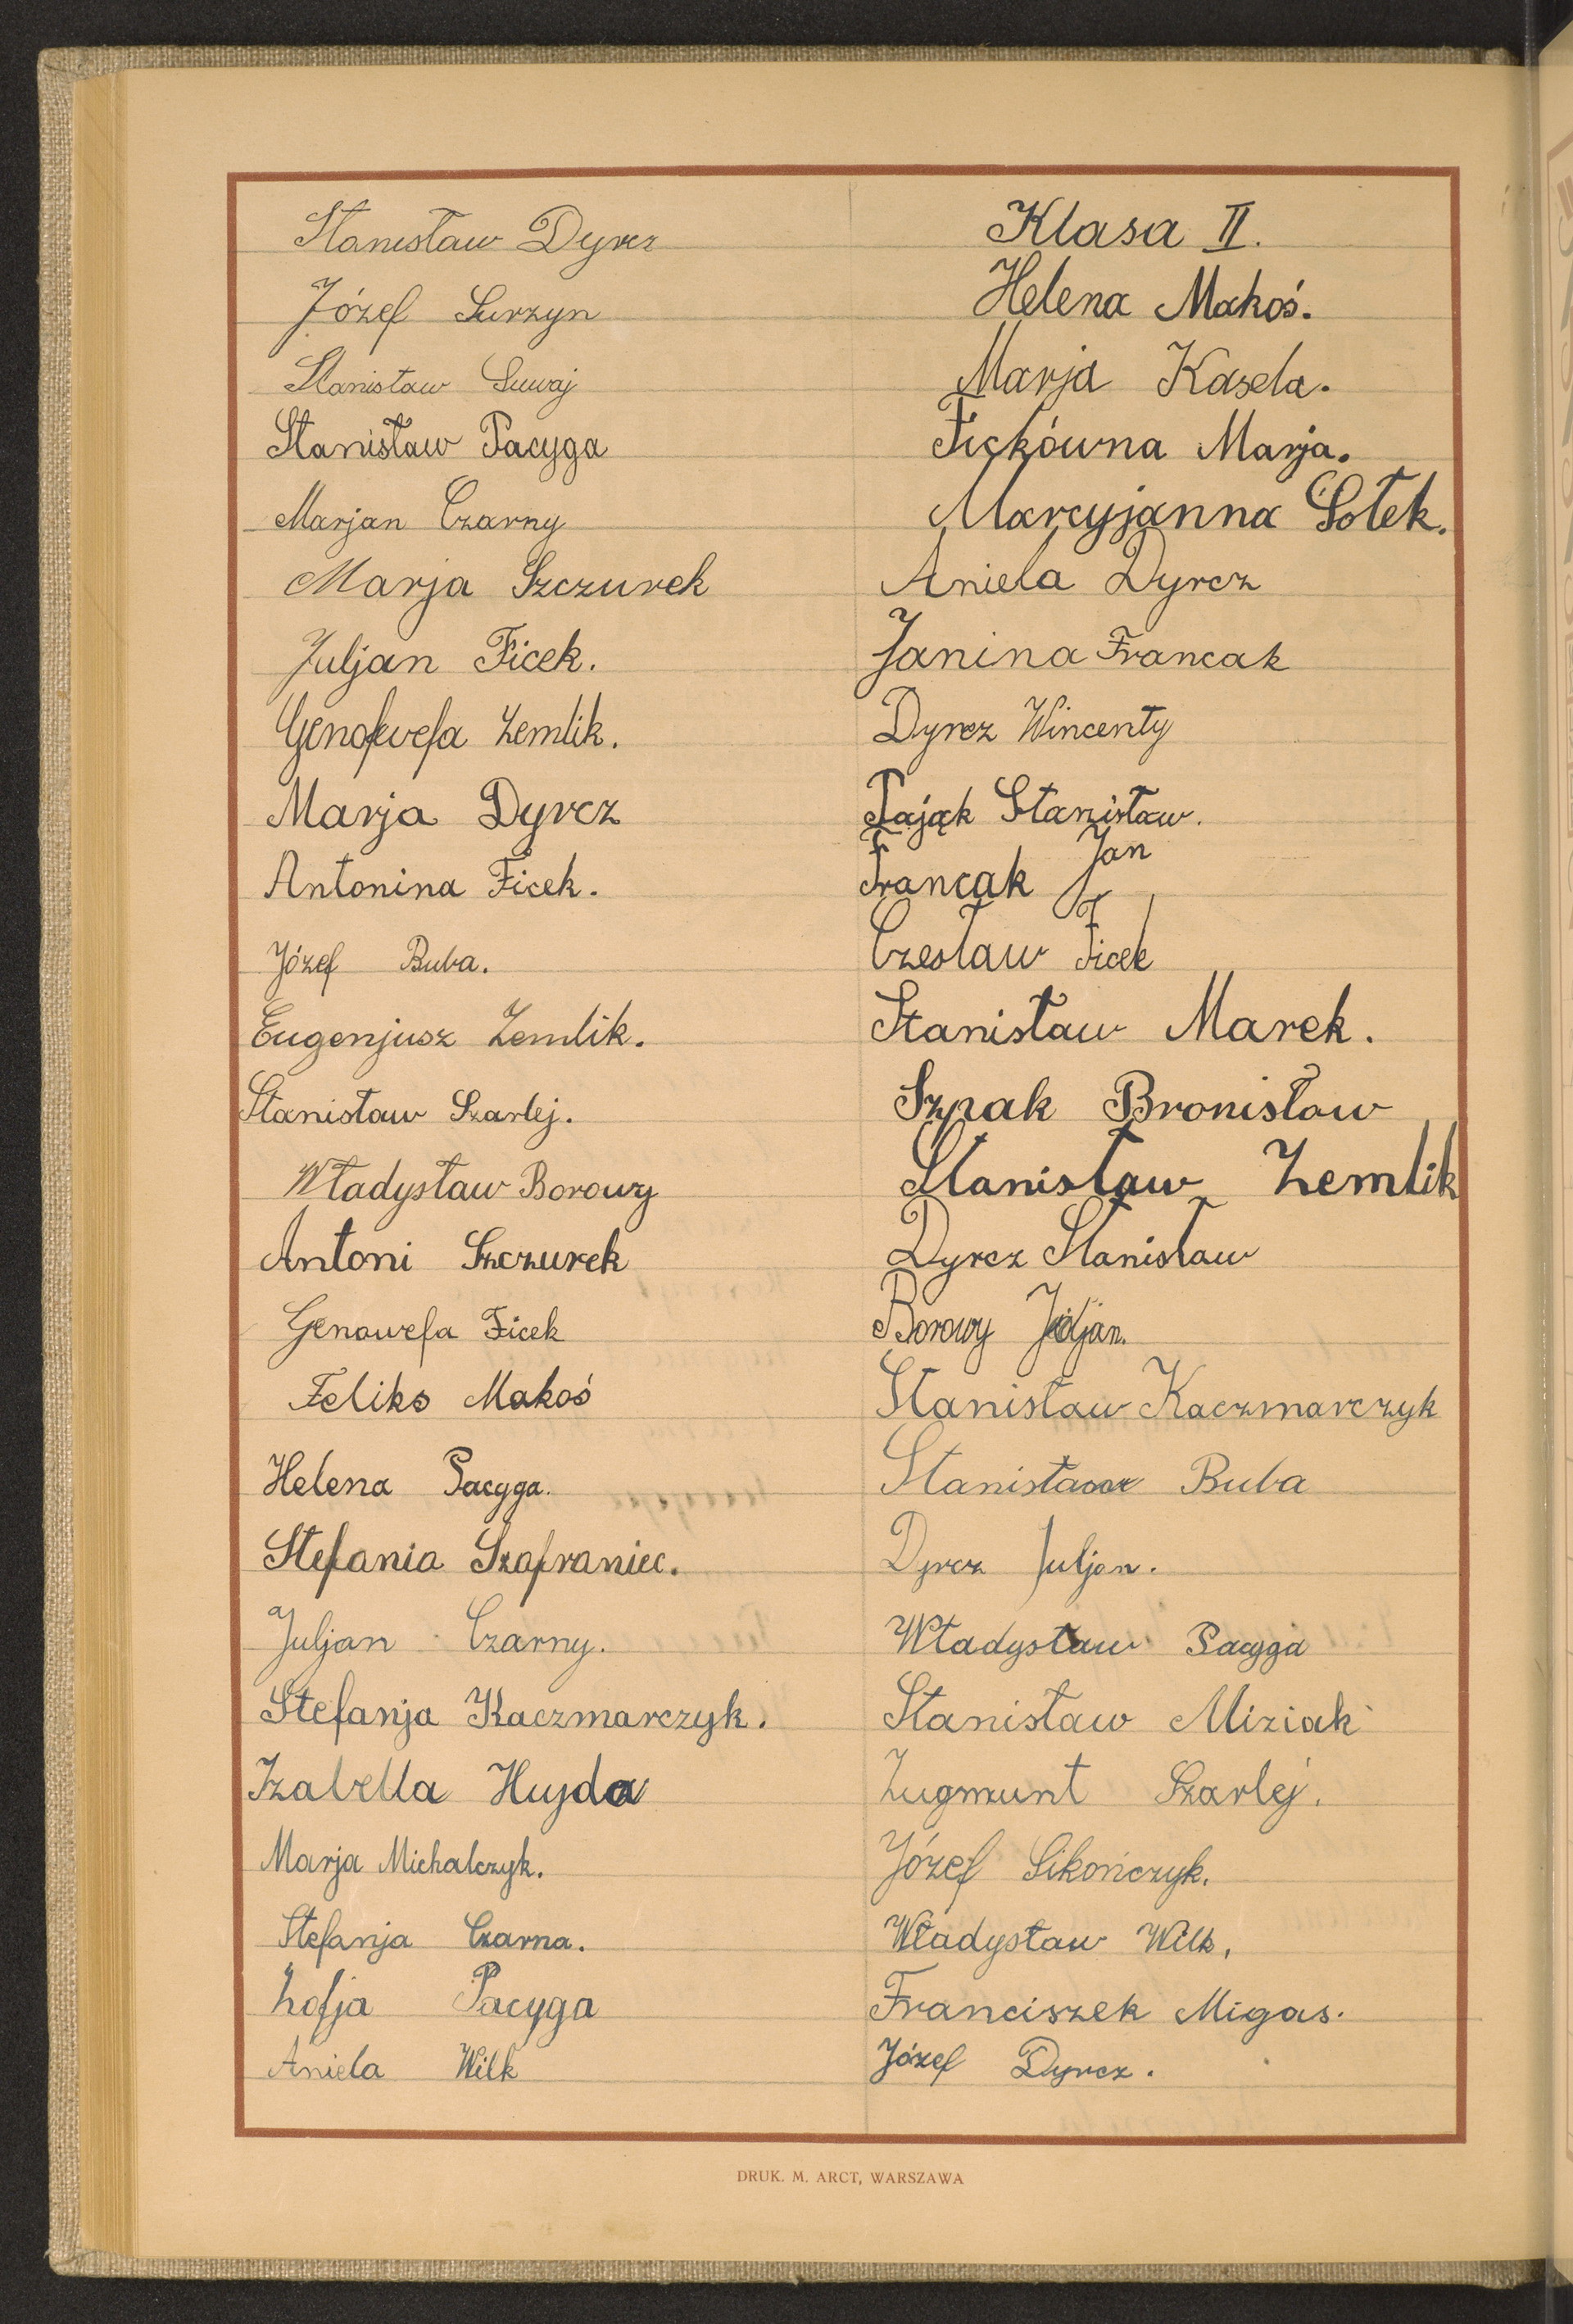 Stanisław Dyrcz
Józef Surzyn
Stanisław Suwaj
Stanisław Pacyga
Marjan Czarny
Marja Szczurek
Juljan Ficek.
Genofewefa Zemlik.
Marja Dyrcz
Antonina Ficek.
Józef Buba.
Eugenjusz Zemlik.
Stanisław Szarlej.
Władysław Borowy
Antoni Szczurek
Genowefa Ficek
Feliks Makoś
Helena Pacyga.
Stefania Szafraniec.
Juljan Czarny.
Stefanja Kaczmarczyk.
Izabella Hujda
Marja Michalczyk.
Stefanja Czarna.
Zofja Pacyga
Aniela Wilk
Klasa II.
Helena Makoś.
Marja Kasela.
Fickówna Marja.
Marcyjanna Sołek.
Aniela Dyrcz
Janina Francak
Dyrcz Wincenty
Pająk Stanisław.
Francak Jan
Czesław Ficek
Stanisław Marek.
Szpak Bronisław
Stanisław Zemlik
Dyrcz Stanisław
Borowy Juljan.
Stanisław Kaczmarczyk
Stanisław Buba
Dyrcz Juljan.
Władysław Pacyga
Stanisław Miziak
Zugmunt Szarlej.
Józef Sikończyk.
Władysław Wilk.
Franciszek Migas.
Józef Dyrcz.
DRUK. M. ARCT, WARSZAWA